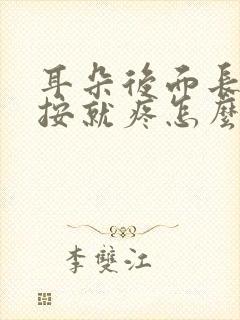 耳朵後面長
按就疼怎麼
李雙江